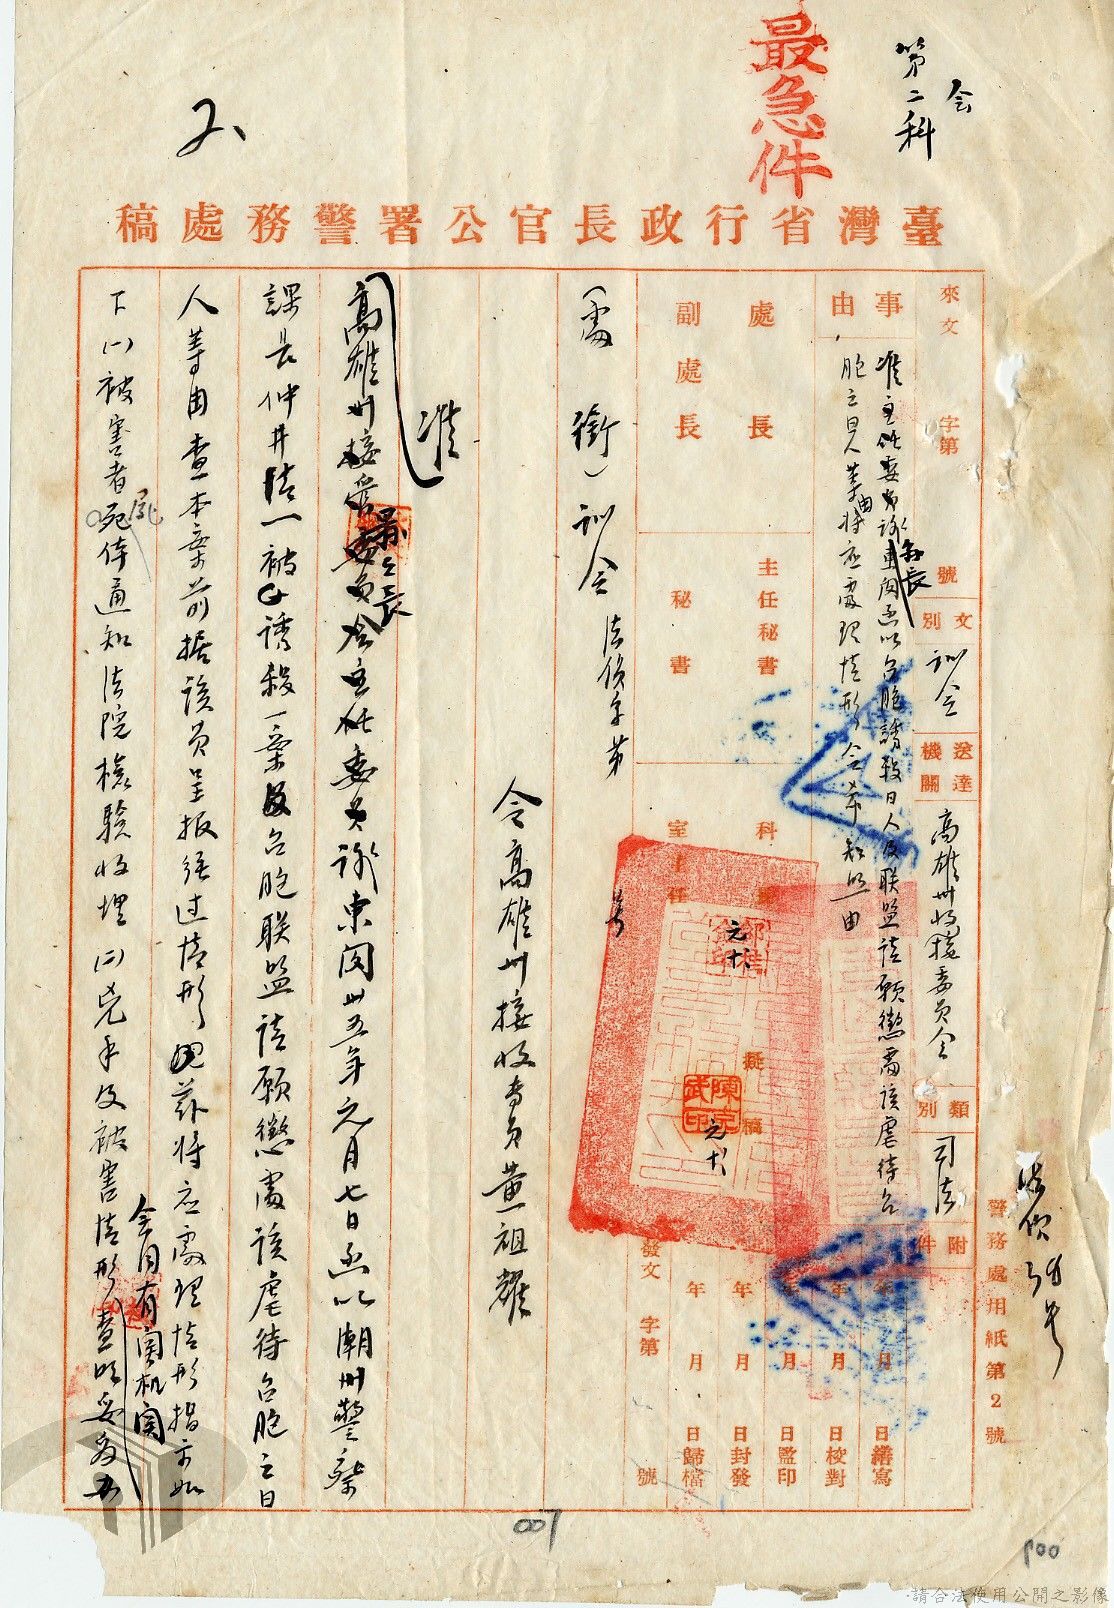 最急件
会
第二科
臺灣省行政長官公署警務處稿
來文 字第 號
文別 訓令
送達機關 高雄州接收委員会
類別 司法
附件
事由
准主任委員謝東閔函以台胞誘殺日人及联盟請願懲處該虐待台
胞之日人等由将应處理情形令希知照由
縣長
處長
副處長
主任秘書
秘書
科長
室主任
擬稿
元十
元十
年 月 日繕寫
年 月 日校對
年 月 日監印
年 月 日封發
年 月 日歸檔
發文 字第 號
(處銜)訓令 法偵字第 号
令高雄州接收專員黃祖耀
准
高雄州接管委員会主任委員謝東閔卅五年元月七日函以潮州警察
縣縣長
課長仲井清一被誘殺一案及台胞联盟請願懲處該虐待台胞之日
人等由查本案前据該員呈报經过情形茲将应處理情形指示如
下(一)被害者死体通知法院檢驗收埋(二)兇手及被害情形查明妥為
会同有関机関
警務處用紙第2號
007
請合法使用公開之影像